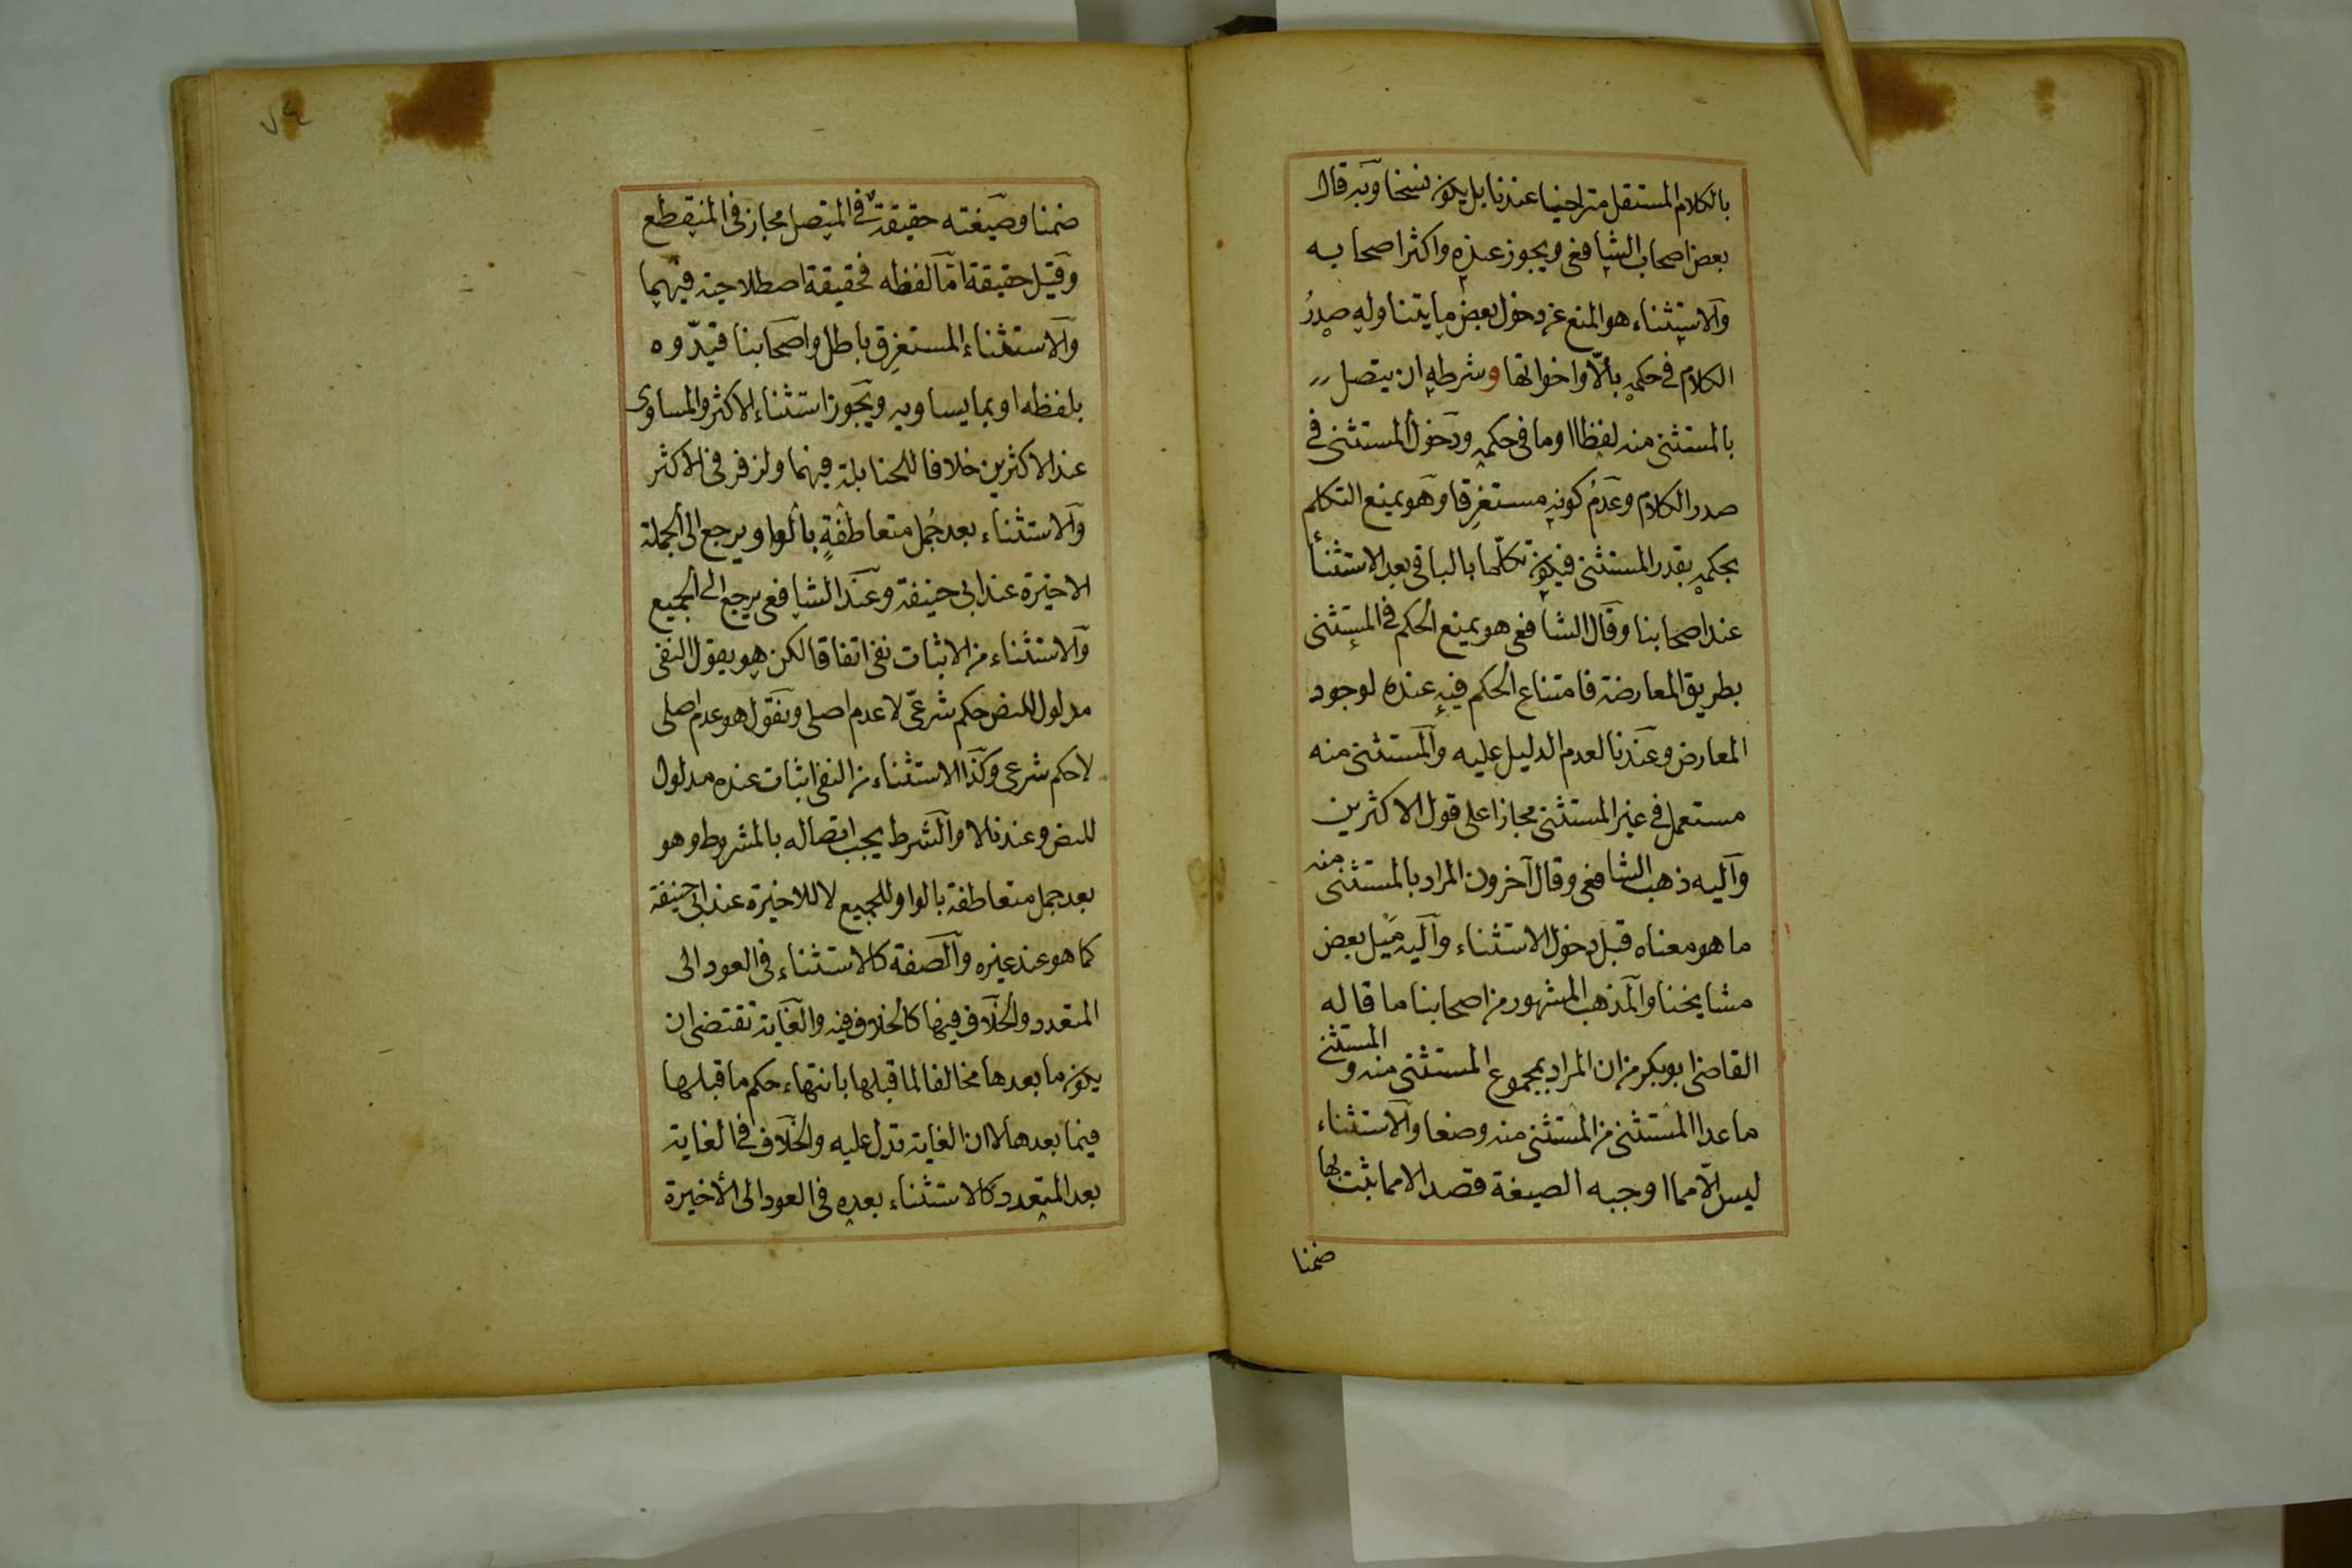 بالكلام المستقل متراخيا عندنا بل يكون نسخا وبه قال
بعض اصحاب الشافعى ويجوز عنده واكثر اصحابه
والاستثناء هو المنع عن دخول بعض ما يتناوله صدرُ
الكلام فى حكمه بالّا واخواتها وشرطه ان يتصل
بالمستثنى منه لفظا او ما فى حكمه ودخول المستثنى فى
صدر الكلام وعدمُ كونه مستغرِقا وهو يمنع التكلم
بحكمه بقدر المستثنى فيكون تكلّما بالباقى بعد الاستثنأ
عند اصحابنا وقال الشافعى هو يمنع الحكم فى المستثنى
بطريق المعارضة فامتناع الحكم فيه عنده لوجود
المعارض وعندنا لعدم الدليل عليه والمستثنى منه
مستعمل فى غير المستثنى مجازا على قول الاكثرين
وآليه ذهب الشافعى وقال آخرون المراد بالمستثنى منه
ما هو معناه قبل دخول الاستثناء وآليه ميل بعض
مشايخنا والمذهب المشهور من اصحابنا ما قاله
القاضى ابو بكر من ان المراد بمجموع المستثنى منه والمستثنى
ما عدا المستثنى من المستثنى منه وضعا والاستثناء
ليس الّا مما اوجبه الصيغة قصدا لا مما ثبت بها
ضمنا
٧٤
ضمنا وصيغته حقيقةٌ فى المتصل مجاز فى المنقطع
وقيل حقيقة امّا لفظه فحقيقة اصطلاحية فيهما
والاستثناء المستغرِق باطل واصحابنا قيّدوه
بلفظه او بما يساويه ويجوز استثناء الاكثر والمساوى
عند الاكثرين خلافا للحنابلة فيهما ولزفر فى الاكثر
والاستثناء بعد جُمل متعاطفةٍ بالواو يرجع الى الجملة
الاخيرة عند ابى حنيفة وعند الشافعى يرجع الى الجميع
والاستثناء من الاثبات نفى اتفاقا لكن هو يقول النفى
مدلول للنص حكم شرعىّ لا عدم اصلى ونقول هو عدم اصلى
لا حكم شرعى وكذا الاستثناء من النفى اثبات عنده مدلول
للنص وعندنا لا والشرط يجب اتصاله بالمشروط وهو
بعد جمل متعاطفة بالواو للجميع لا للاخيرة عند ابى حنيفة
كما هو عند غيره والصفة كالاستثناء فى العود الى
المتعدد والخلاف فيها كالخلاف فيه والغاية تقتضى ان
يكون ما بعدها مخالفا لما قبلها بانتهاء حكم ما قبلها
فيما بعدها لا ان الغاية تدل عليه والخلاف فى الغاية
بعد المتعدد كالاستثناء بعده فى العود الى الأخيرة